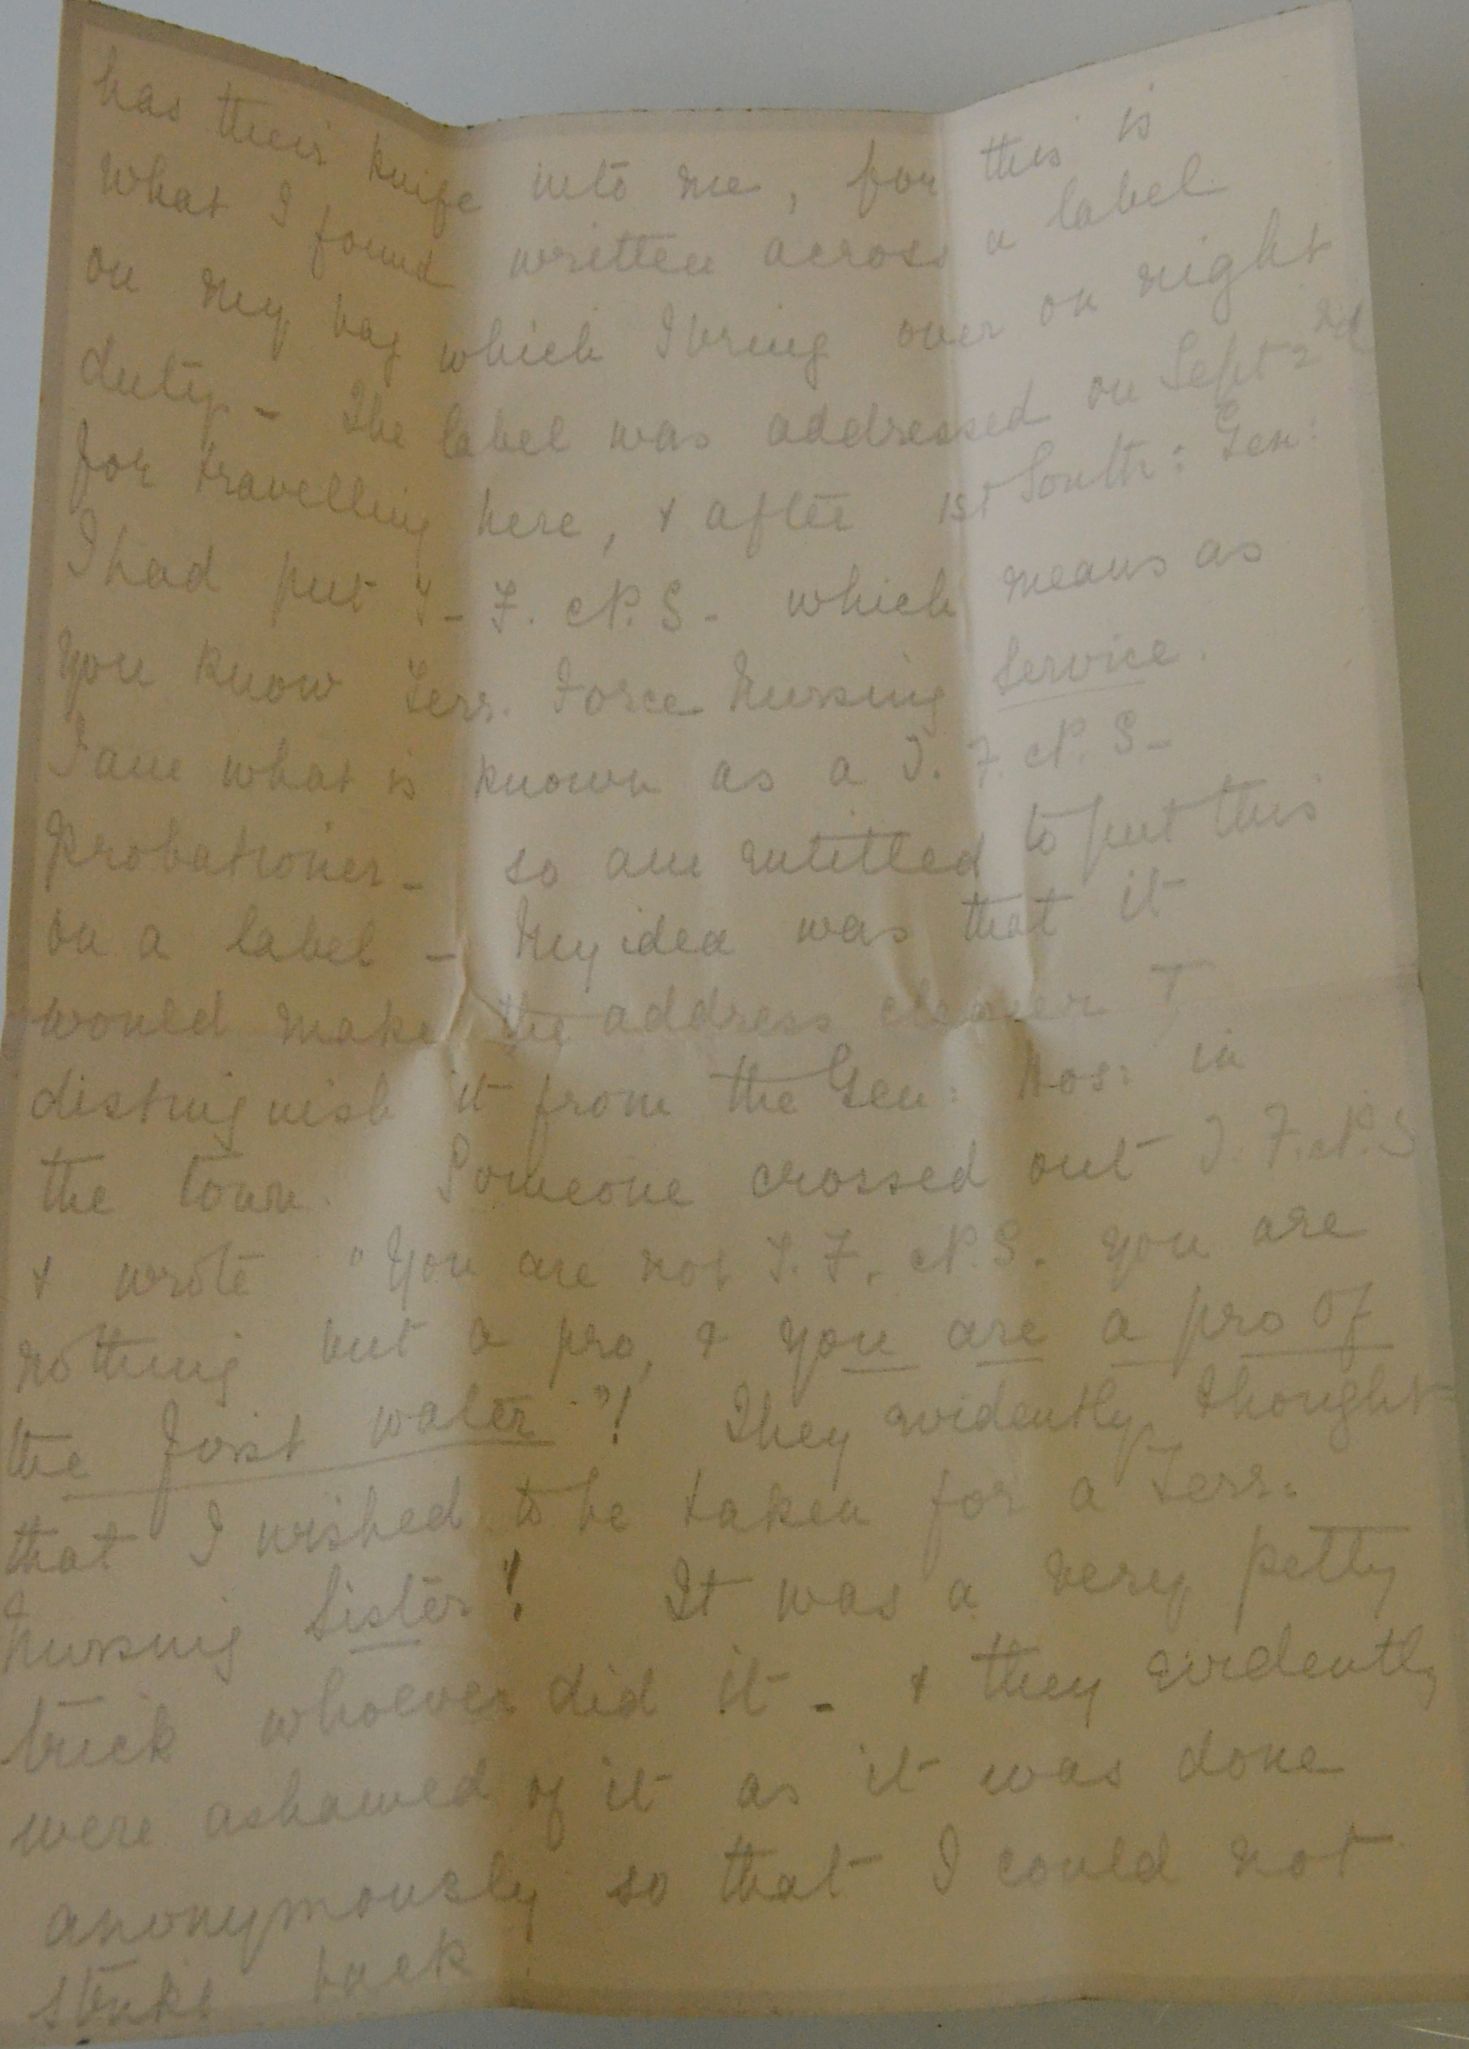 has their knife into me, for this is
what I found written across a label
on my bag which I bring over on night
duty - The label was addressed on Sept 2nd
for travelling here, & after 1st South: Gen:
I had put T-F. N.S- which means as
you know Terr. Force Nursing Service.
I am what is known as a T.F. N.S-
Probationer - so am entitled to put this
on a label - My idea was that it
would make the address clearer &
distinguish it from the Gen: Hos: in
the town. Someone crossed out T.F.N.S
& wrote "You are not T.F.N.S. you are
nothing but a pro, & you are a pro of
the first water"! They evidently thought
that I wished to be taken for a Terr.
Nursing Sister! It was a very petty
trick whoever did it - & they evidently
were ashamed of it as it was done
anonymously so that I could not
strike back